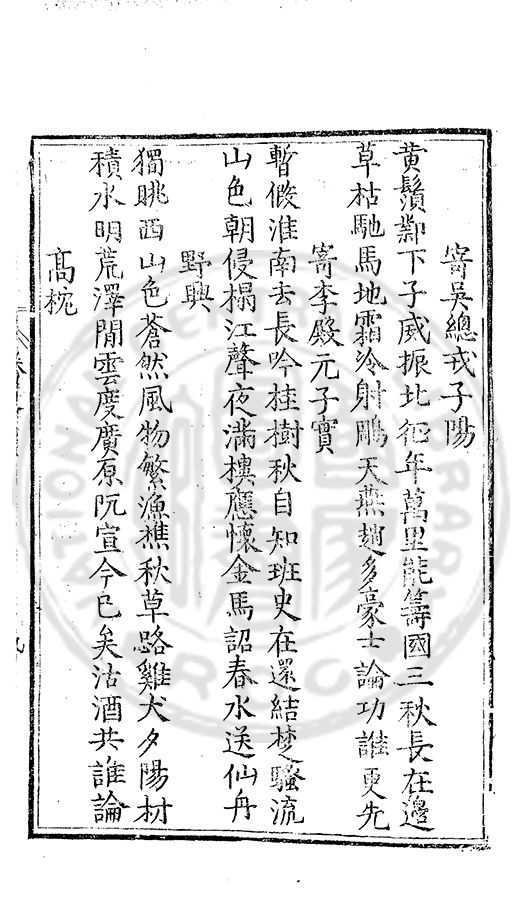 寄吳總戎子陽
黄鬚鄴下子威振北征年萬里能籌國三秋長在邊
草枯馳馬地霜冷射鵰天燕趙多豪士論功誰更先
寄李殿元子實
暫假淮南去長吟桂樹秋自知班史在還結楚騷流
山色朝侵榻江聲夜滿樓應懷金馬詔春水送仙舟
野興
獨眺西山色蒼然風物繁漁樵秋草路雞犬夕陽村
積水明荒澤閒雲度廣原阮宣今已矣沽酒共誰論
高椀
九